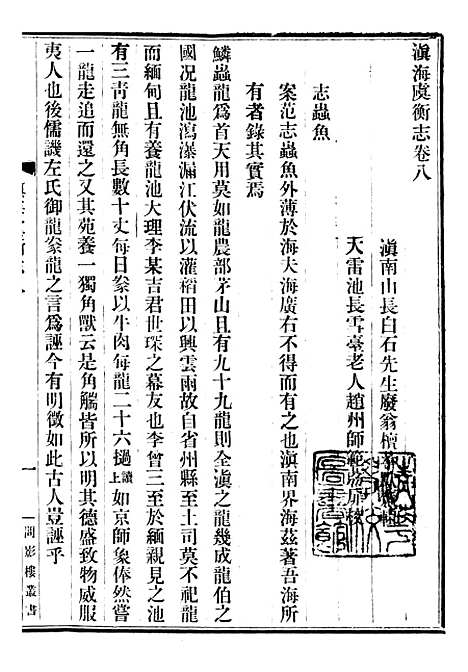 滇海虞衡志卷八
滇南山長白石先生廢翁檀萃
天雷池長雪臺老人趙州師範
志蟲魚
案范志蟲魚外薄於海夫海廣右不得而有之也滇南界海茲著吾海所
有者錄其實焉
鱗蟲龍爲首天用莫如龍農部茅山且有九十九龍則全滇之龍幾成龍伯之
國况龍池瀉瀑漏江伏流以灌稻田以興雲雨故自省州縣至土司莫不祀龍
而緬甸且有養龍池大理李某吉君世琛之幕友也李曾三至於緬親見之池
有三青龍無角長數十丈每日豢以牛肉每龍二十六撾讀上如京師象俸然嘗
一龍走追而還之又其苑養一獨角獸云是角觿皆所以明其德盛致物威服
夷人也後儒譏左氏御龍豢龍之言爲誣今有明徵如此古人豈誣乎
一
問影樓叢書